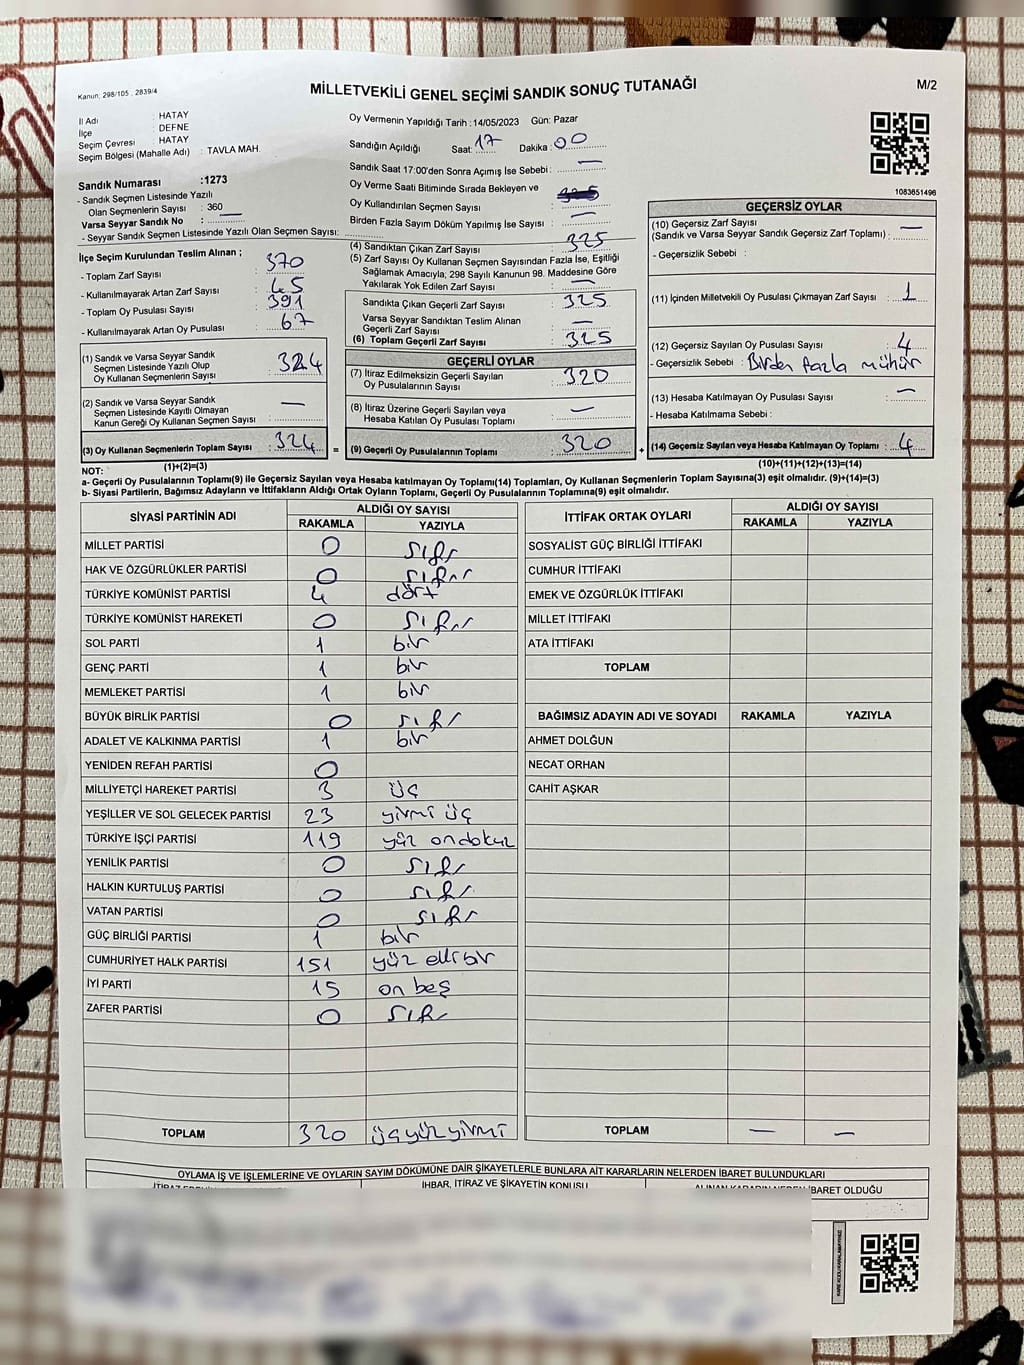 Kanun: 298/105 , 2839/4
MİLLETVEKİLİ GENEL SEÇİMİ SANDIK SONUÇ TUTANAĞI
M/2
İl Adı : HATAY
İlçe : DEFNE
Seçim Çevresi : HATAY
Seçim Bölgesi (Mahalle Adı) : TAVLA MAH.
Sandık Numarası :1273
- Sandık Seçmen Listesinde Yazılı
Olan Seçmenlerin Sayısı : 360
Varsa Seyyar Sandık No : —
- Seyyar Sandık Seçmen Listesinde Yazılı Olan Seçmen Sayısı:
Oy Vermenin Yapıldığı Tarih : 14/05/2023 Gün: Pazar
Sandığın Açıldığı Saat: 17 Dakika : 00
Sandık Saat 17:00'den Sonra Açımış İse Sebebi: —
Oy Verme Saati Bitiminde Sırada Bekleyen ve
Oy Kullandırılan Seçmen Sayısı :
Birden Fazla Sayım Döküm Yapılmış İse Sayısı : —
1083651496
İlçe Seçim Kurulundan Teslim Alınan ;
- Toplam Zarf Sayısı : 370
- Kullanılmayarak Artan Zarf Sayısı : 45
- Toplam Oy Pusulası Sayısı : 391
- Kullanılmayarak Artan Oy Pusulası : 67
(1) Sandık ve Varsa Seyyar Sandık
Seçmen Listesinde Yazılı Olup
Oy Kullanan Seçmenlerin Sayısı : 324
(2) Sandık ve Varsa Seyyar Sandık
Seçmen Listesinde Kayıtlı Olmayan
Kanun Gereği Oy Kullanan Seçmen Sayısı : —
(3) Oy Kullanan Seçmenlerin Toplam Sayısı : 324
(1)+(2)=(3)
(4) Sandıktan Çıkan Zarf Sayısı : 325
(5) Zarf Sayısı Oy Kullanan Seçmen Sayısından Fazla İse, Eşitliği
Sağlamak Amacıyla; 298 Sayılı Kanunun 98. Maddesine Göre
Yakılarak Yok Edilen Zarf Sayısı : —
Sandıkta Çıkan Geçerli Zarf Sayısı : 325
Varsa Seyyar Sandıktan Teslim Alınan
Geçerli Zarf Sayısı : —
(6) Toplam Geçerli Zarf Sayısı : 325
GEÇERLİ OYLAR
(7) İtiraz Edilmeksizin Geçerli Sayılan
Oy Pusulalarının Sayısı : 320
(8) İtiraz Üzerine Geçerli Sayılan veya
Hesaba Katılan Oy Pusulası Toplamı : —
= (9) Geçerli Oy Pusulalarının Toplamı : 320
GEÇERSİZ OYLAR
(10) Geçersiz Zarf Sayısı
(Sandık ve Varsa Seyyar Sandık Geçersiz Zarf Toplamı) : —
- Geçersizlik Sebebi :
(11) İçinden Milletvekili Oy Pusulası Çıkmayan Zarf Sayısı : 1
(12) Geçersiz Sayılan Oy Pusulası Sayısı : 4
- Geçersizlik Sebebi : Birden fazla mühür
(13) Hesaba Katılmayan Oy Pusulası Sayısı : —
- Hesaba Katılmama Sebebi :
+ (14) Geçersiz Sayılan veya Hesaba Katılmayan Oy Toplamı : 4
(10)+(11)+(12)+(13)=(14)
NOT:
a- Geçerli Oy Pusulalarının Toplamı(9) ile Geçersiz Sayılan veya Hesaba katılmayan Oy Toplamı(14) Toplamları, Oy Kullanan Seçmenlerin Toplam Sayısına(3) eşit olmalıdır. (9)+(14)=(3)
b- Siyasi Partilerin, Bağımsız Adayların ve İttifakların Aldığı Ortak Oyların Toplamı, Geçerli Oy Pusulalarının Toplamına(9) eşit olmalıdır.
SİYASİ PARTİNİN ADI ALDIĞI OY SAYISI
RAKAMLA YAZIYLA
MİLLET PARTİSİ 0 sıfır
HAK VE ÖZGÜRLÜKLER PARTİSİ 0 sıfır
TÜRKİYE KOMÜNİST PARTİSİ 4 dört
TÜRKİYE KOMÜNİST HAREKETİ 0 sıfır
SOL PARTİ 1 bir
GENÇ PARTİ 1 bir
MEMLEKET PARTİSİ 1 bir
BÜYÜK BİRLİK PARTİSİ 0 sıfır
ADALET VE KALKINMA PARTİSİ 1 bir
YENİDEN REFAH PARTİSİ 0
MİLLİYETÇİ HAREKET PARTİSİ 3 üç
YEŞİLLER VE SOL GELECEK PARTİSİ 23 yirmi üç
TÜRKİYE İŞÇİ PARTİSİ 119 yüz ondokuz
YENİLİK PARTİSİ 0 sıfır
HALKIN KURTULUŞ PARTİSİ 0 sıfır
VATAN PARTİSİ 0 sıfır
GÜÇ BİRLİĞİ PARTİSİ 1 bir
CUMHURİYET HALK PARTİSİ 151 yüz elli bir
İYİ PARTİ 15 on beş
ZAFER PARTİSİ 0 sıfır
TOPLAM 320 üçyüzyirmi
İTTİFAK ORTAK OYLARI ALDIĞI OY SAYISI
RAKAMLA YAZIYLA
SOSYALİST GÜÇ BİRLİĞİ İTTİFAKI
CUMHUR İTTİFAKI
EMEK VE ÖZGÜRLÜK İTTİFAKI
MİLLET İTTİFAKI
ATA İTTİFAKI
TOPLAM
BAĞIMSIZ ADAYIN ADI VE SOYADI RAKAMLA YAZIYLA
AHMET DOLĞUN
NECAT ORHAN
CAHİT AŞKAR
TOPLAM — —
OYLAMA İŞ VE İŞLEMLERİNE VE OYLARIN SAYIM DÖKÜMÜNE DAİR ŞİKAYETLERLE BUNLARA AİT KARARLARIN NELERDEN İBARET BULUNDUKLARI
İHBAR, İTİRAZ VE ŞİKAYETİN KONUSU
İBARET OLDUĞU
KARE KODU KARALAMAYINIZ